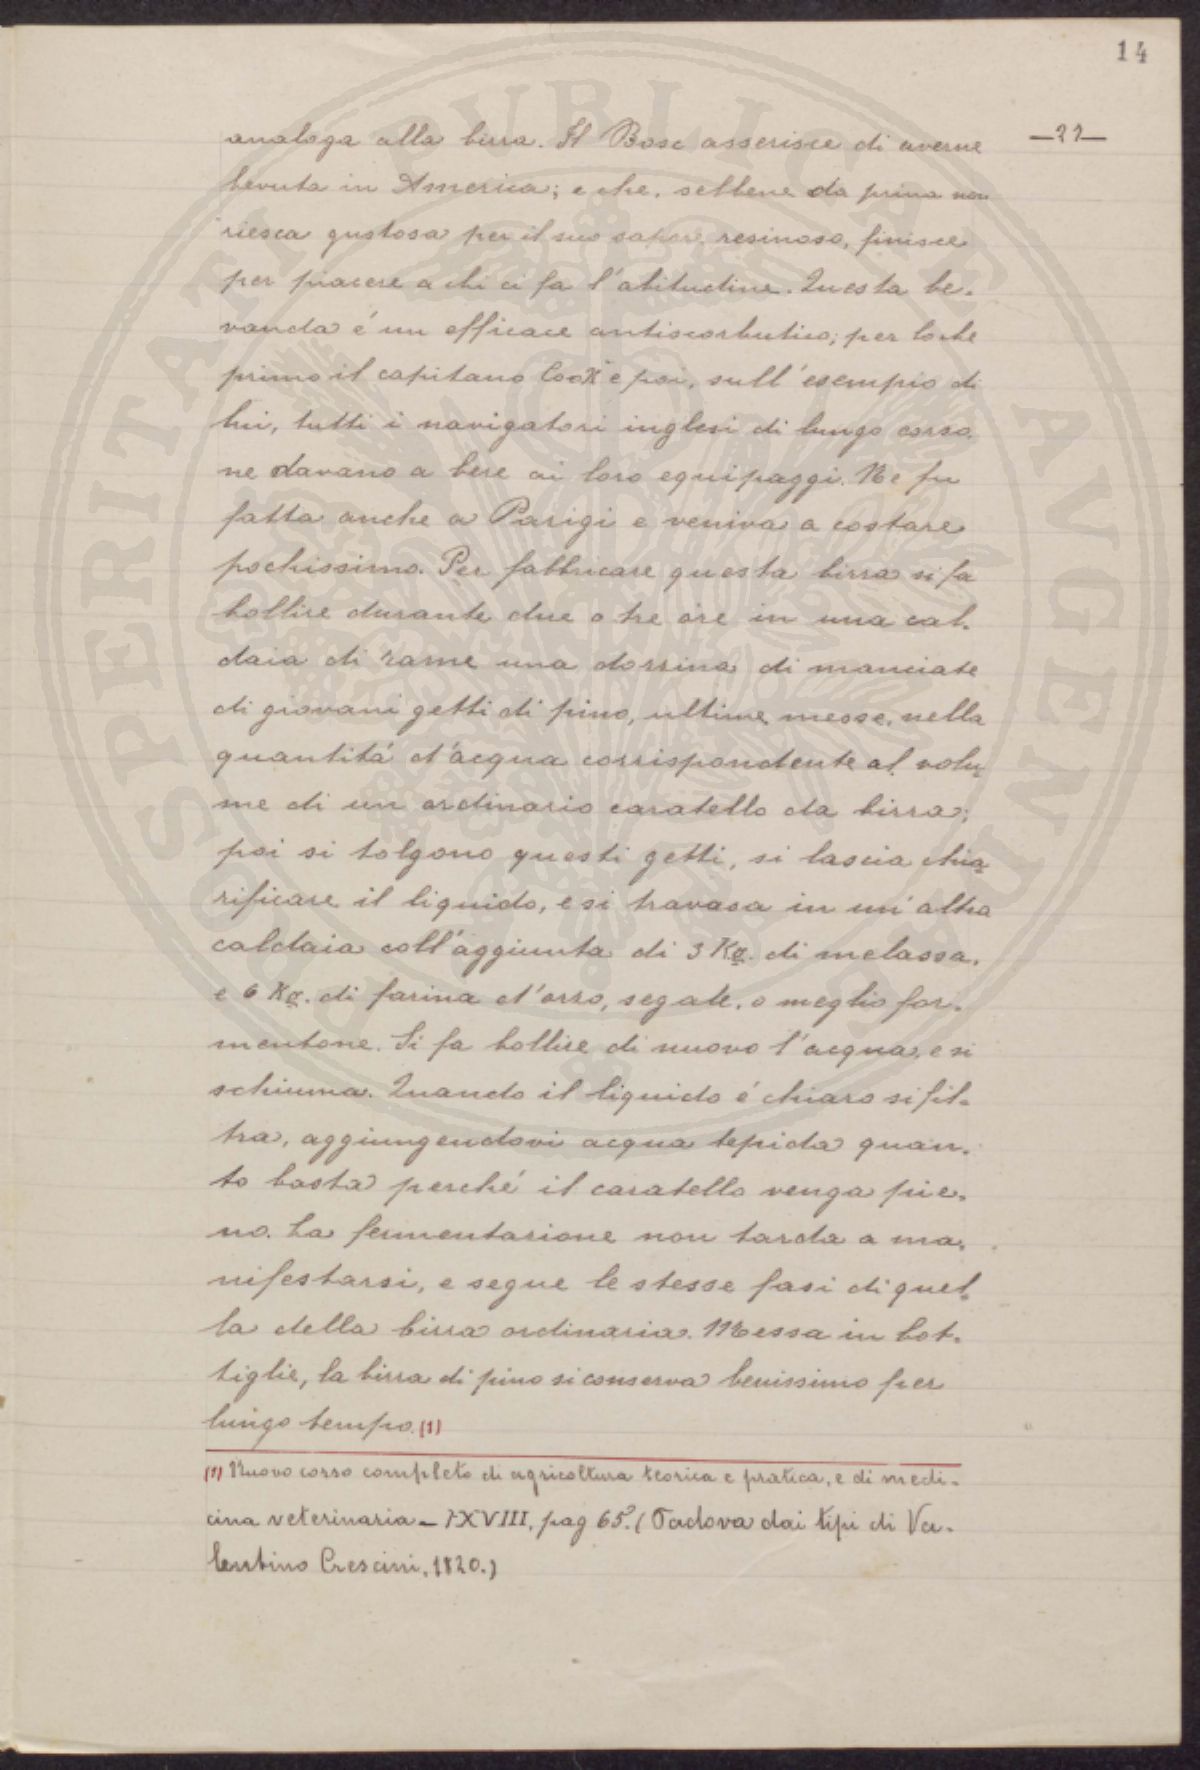 14
—22—
analoga alla birra. Il Bosc asserisce di averne
bevuta in America; e che, sebbene da prima non
riesca gustosa per il suo sapore resinoso, finisce
per piacere a chi ci fa l'abitudine. Questa be-
vanda é un efficace antiscorbutico; per loche
primo il capitano Cook e poi, sull'esempio di
lui, tutti i navigatori inglesi di lungo corso
ne davano a bere ai loro equipaggi. Ne fu
fatta anche a Parigi e veniva a costare
pochissimo. Per fabbricare questa birra si fa
bollire durante due o tre ore in una cal-
daia di rame una dozzina di manciate
di giovani getti di pino, ultime messe, nella
quantitá d'acqua corrispondente al volu-
me di un ordinario caratello da birra;
poi si tolgono questi getti, si lascia chia-
rificare il liquido, e si travasa in un'altra
caldaia coll'aggiunta di 3 Kg. di melassa,
e 6 Kg. di farina d'orzo, segale, o meglio for-
mentone. Si fa bollire di nuovo l'acqua, e si
schiuma. Quando il liquido é chiaro si fil-
tra, aggiungendovi acqua tepida quan-
to basta perché il caratello venga pie-
no. La fermentazione non tarda a ma-
nifestarsi, e segue le stesse fasi di quel-
la della birra ordinaria. Messa in bot-
tiglie, la birra di pino si conserva benissimo per
lungo tempo. (1)
(1) Nuovo corso completo di agricoltura teorica e pratica, e di medi-
cina veterinaria - T. XVIII, pag 65. (Padova dai tipi di Va-
lentino Crescini, 1820.)
PROSPERITATI PUBLICAE AVGENDAE